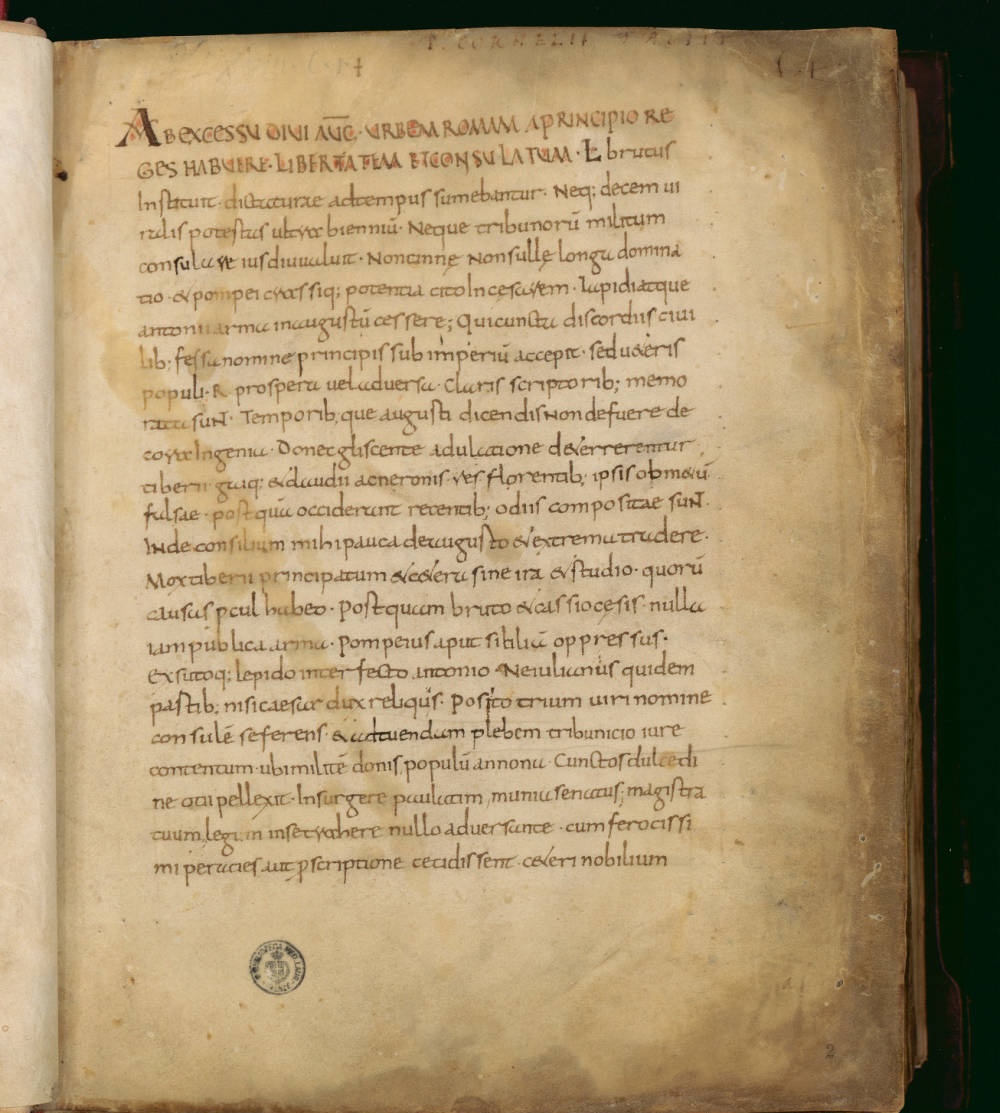 P. CORNELII TACITI
AB EXCESSU DIVI AUG̅· URBEM ROMAM APRINCIPIO RE
GES HABUERE· LIBERTATEM ET CONSULATUM· L brutus
Instituit· dictaturae adtempus sumebantur· Neq; decem ui
ralis potestas ultra bienniū· Neque tribunorū militum
consulare ius diu ualuit· Noncinnę Nonsullę longa domina
tio· & pompei crassiq; potentia cito Incesarem· Lepidi atque
antonii arma inaugustū cessere; Qui cuncta discordiis ciui
lib; fessa nomine principis sub imperiū accepit· sed ueteris
populi· R· prospera uel aduersa· Claris scriptorib; memo
rata suNT· Temporib; que augusti dicendis Non defuere de
cora Ingenia· Donec gliscente adulatione deterrerentur
tiberii gaiq; & claudii ac neronis· res florentib; ipsis ob metū
falsae· post quā occiderant recentib; odiis compositae suNT·
INde consilium mihi pauca de augusto & extrema tradere·
Mox tiberii principatum & cetera sine ira & studio· quorū
causas pcul habeo· Post quam bruto & cassio cęsis· nulla
iam publica arma· Pompeius aput siciliā oppressus·
Exsutoq; lepido interfecto antonio Neiulianus quidem
partib; nisi caesar dux reliqus· Posito trium uiri nomine
consulē se ferens· & adtuendam plebem tribunicio iure
contentum· ubi militē donis, populū annona· Cunctos dulcedi
ne otii pellexit· Insurgere paulatim, munia senatus; magistra
tuum, legum in se trahere nullo aduersante· cum ferocissi
mi per acies aut pscriptione cecidissent· ceteri nobilium
2